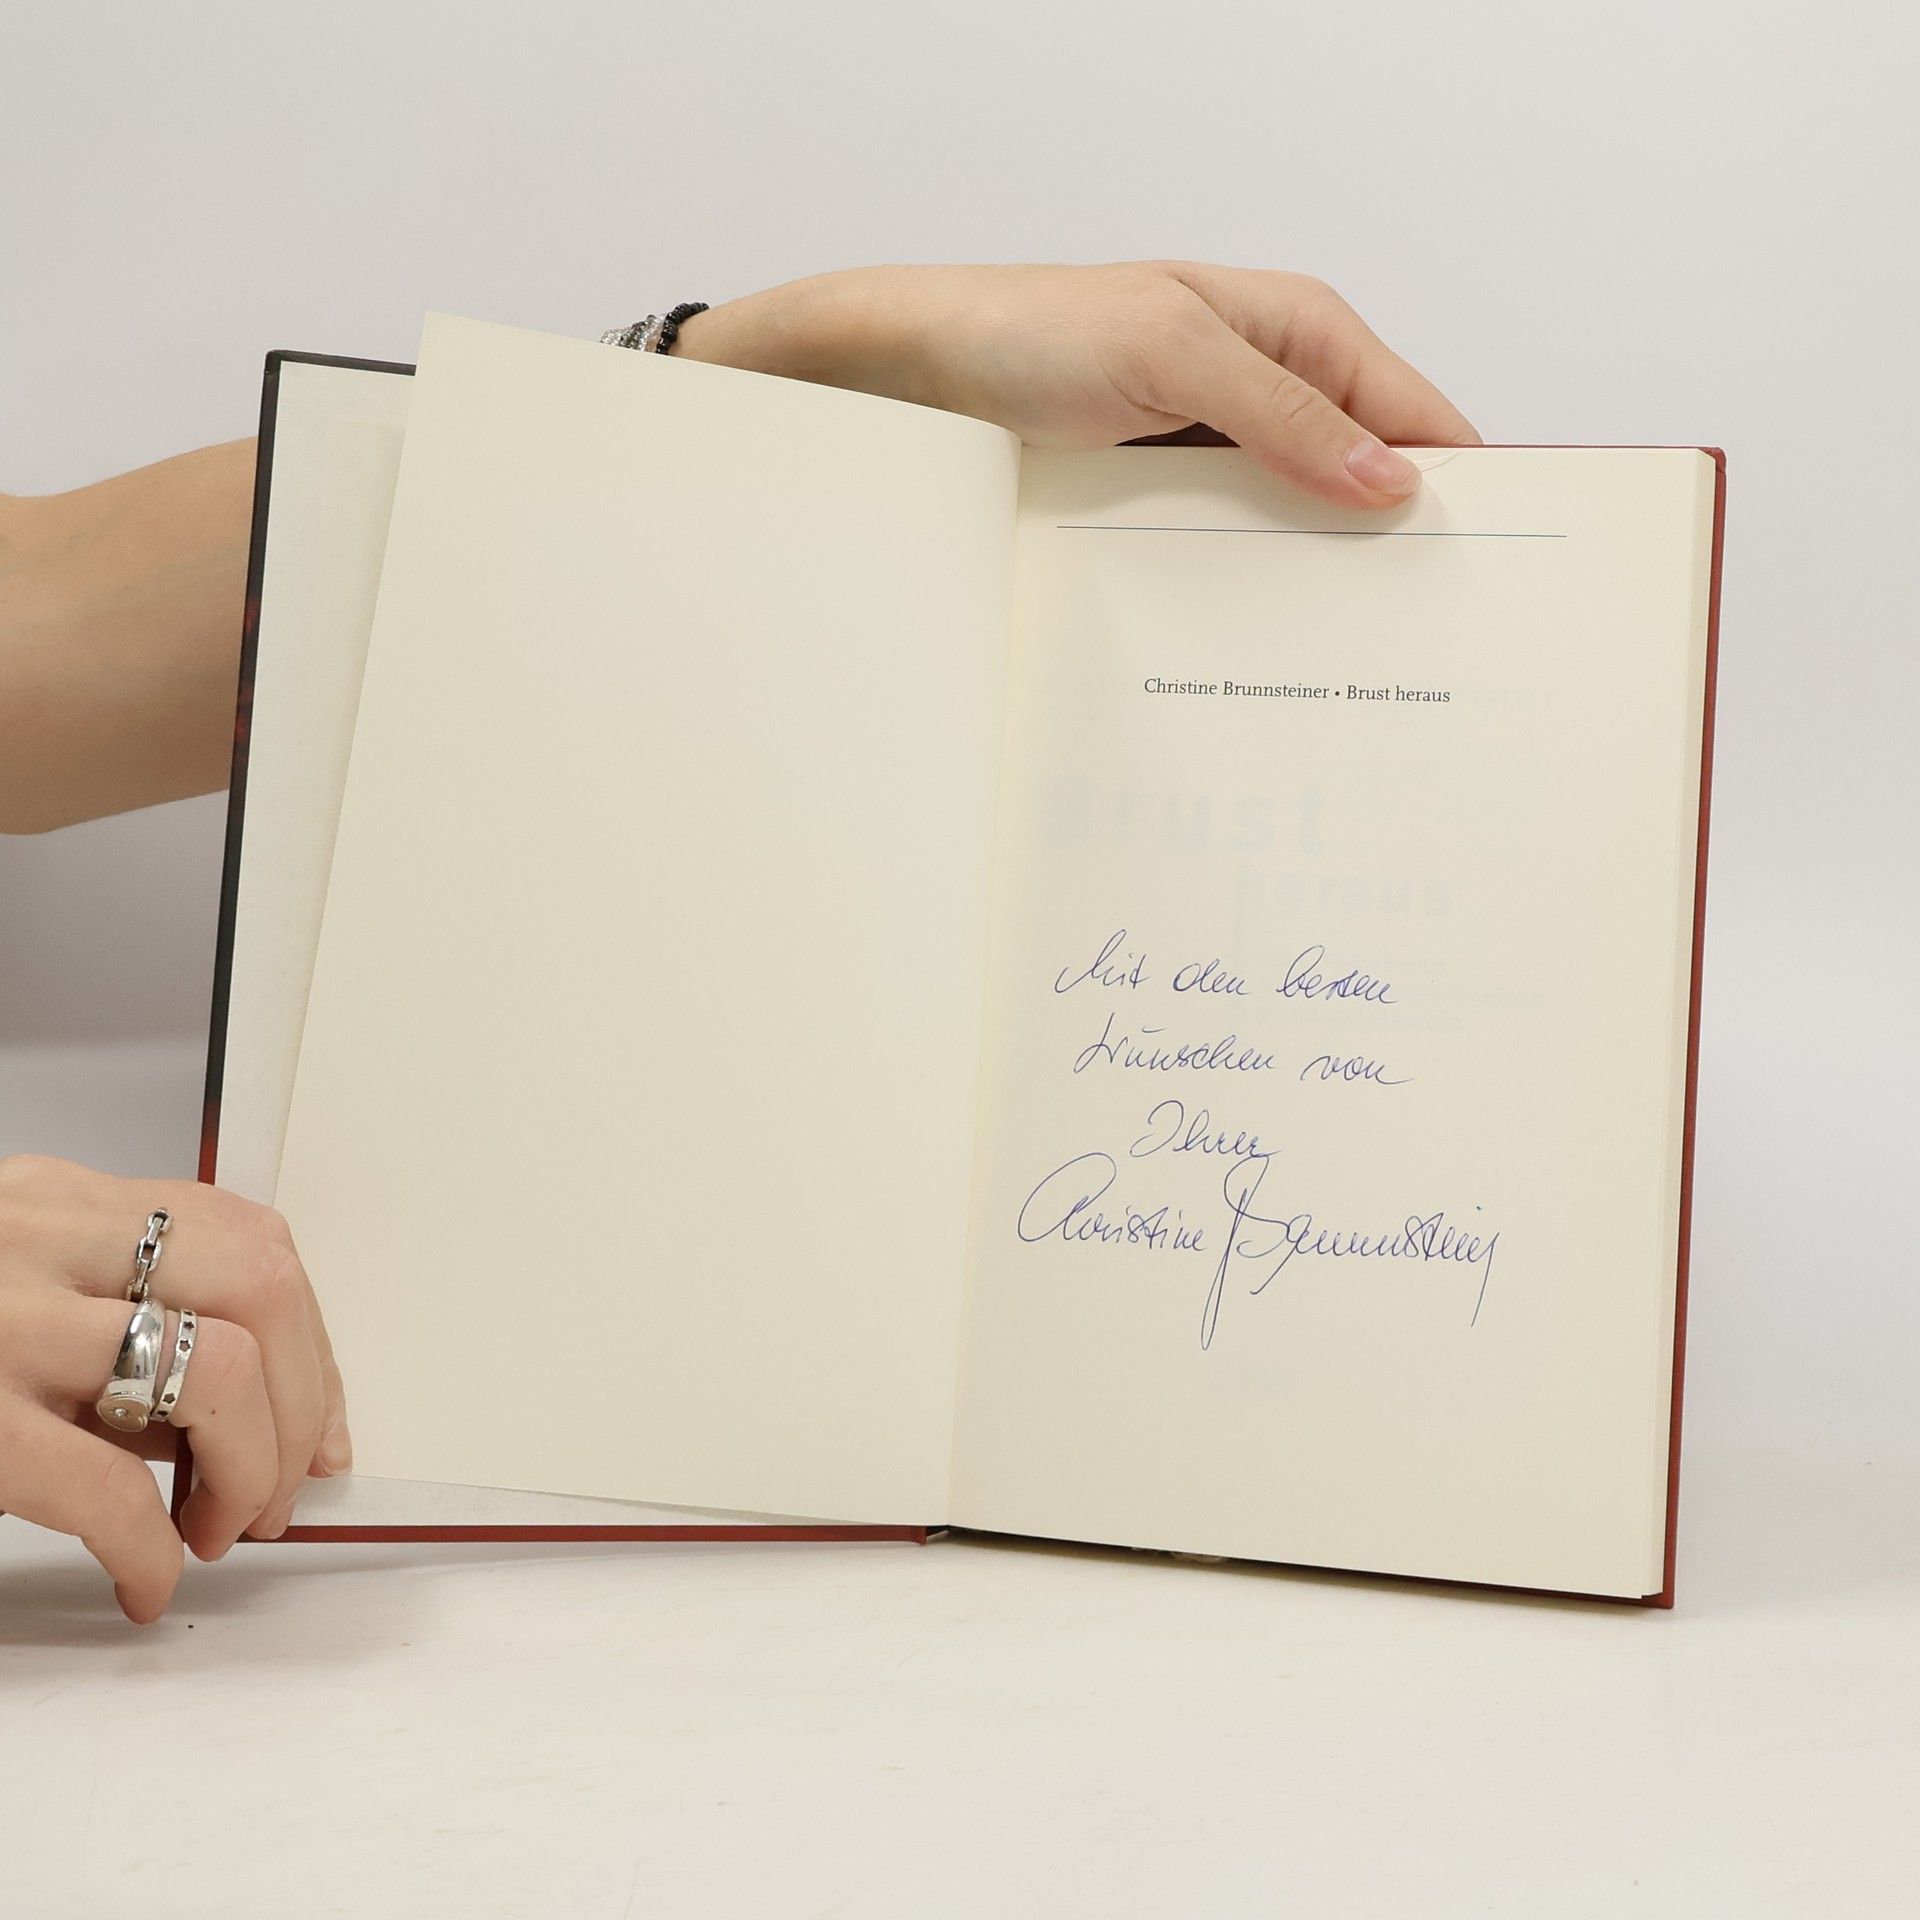 Christine Brunnsteiner • Brust heraus
Brust
heraus
Mit den besten
Wünschen von
Ihrer
Christine Brunnsteiner